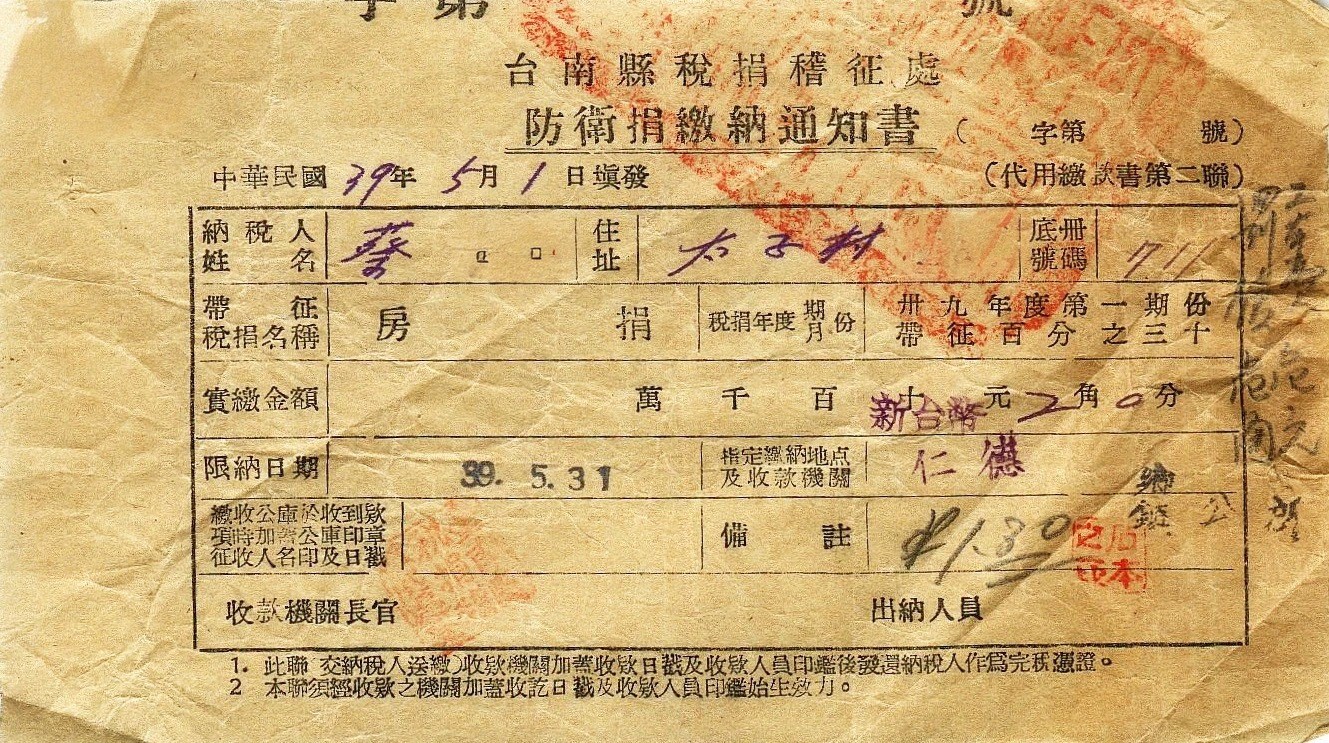 字第 號
台南縣稅捐稽征處
防衛捐繳納通知書 ( 字第 號)
中華民國39年5月1日塡發 (代用繳款書第二聯)
納稅人姓名 蔡□□ 住址 太子村 底冊號碼 711
帶征稅捐名稱 房捐 稅捐年度期月份 卅九年度第一期份帶征百分之三十
實繳金額 萬千百十元2角0分
新台幣
限納日期 39. 5. 31 指定繳納地点及收款機關 仁德 鄉鎮公所
繳收公庫於收到款
項時加蓋公庫印章
征收人名印及日戳
備註 1.80
收款機關長官 出納人員
1. 此聯(交納稅人送繳)收款機關加蓋收款日戳及收款人員印鑑後發還納稅人作爲完稅憑證。
2 本聯須經收款之機關加蓋收訖日戳及收款人員印鑑始生效力。